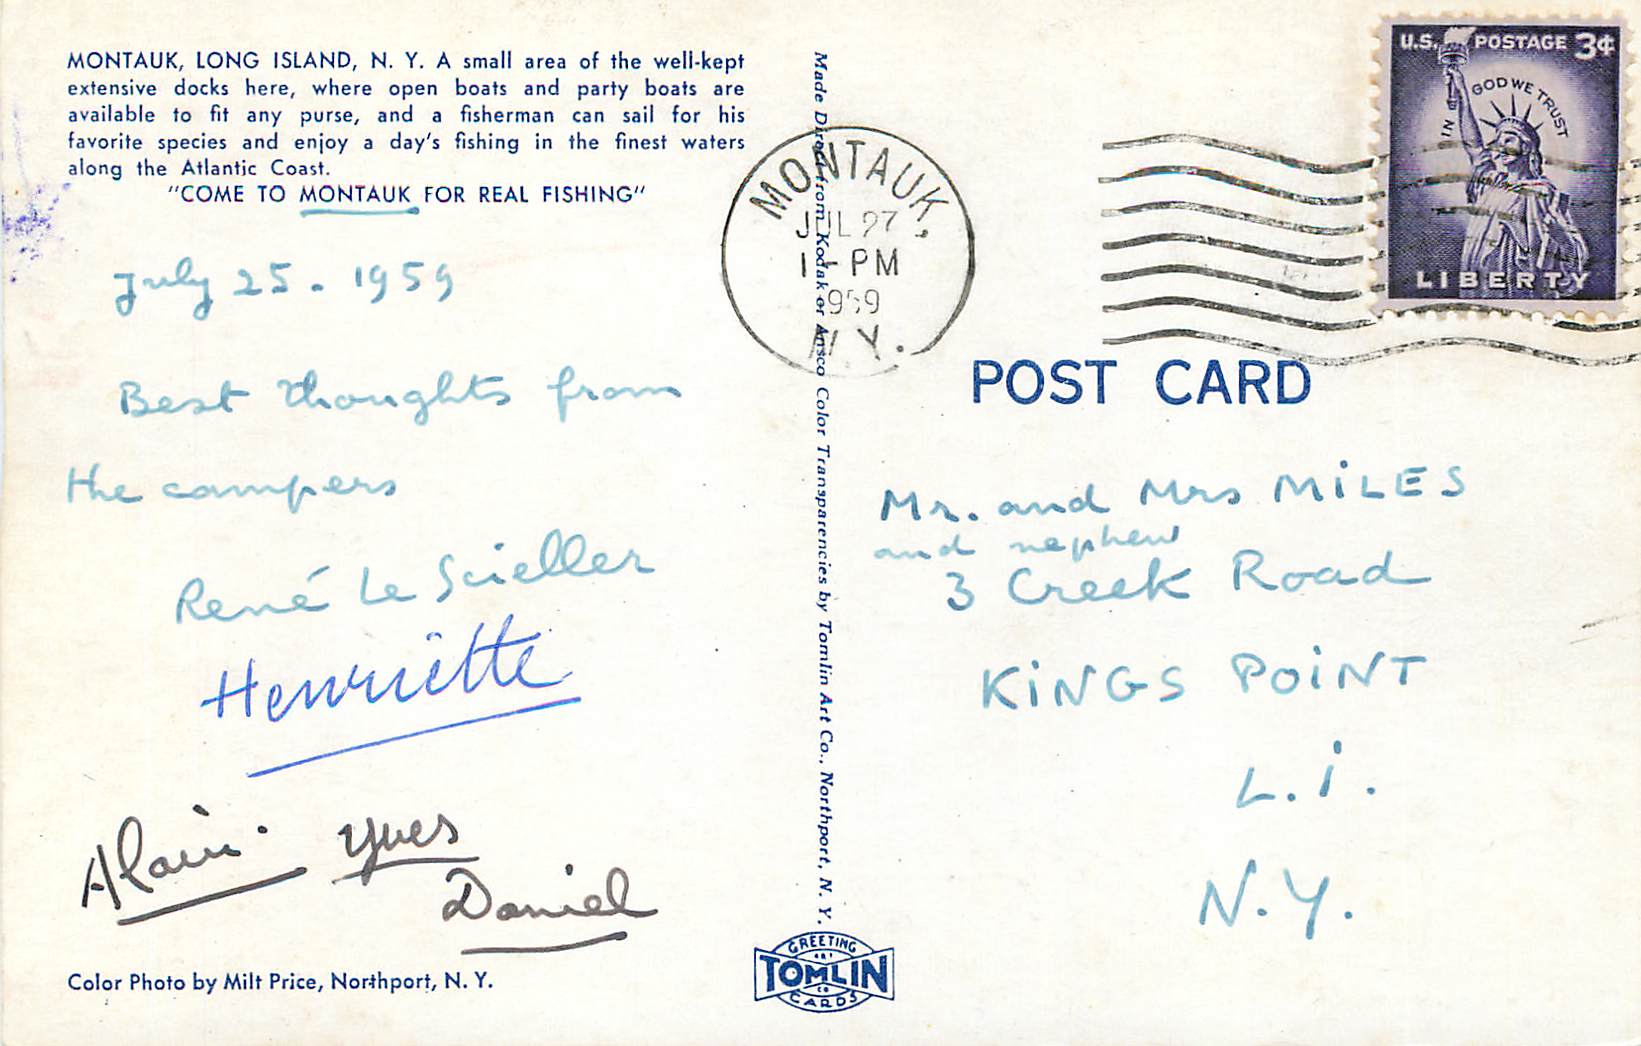 MONTAUK, LONG ISLAND, N. Y. A small area of the well-kept
extensive docks here, where open boats and party boats are
available to fit any purse, and a fisherman can sail for his
favorite species and enjoy a day's fishing in the finest waters
along the Atlantic Coast.
"COME TO MONTAUK FOR REAL FISHING"
July 25. 1959
Best thoughts from
the campers
René Le Scieller
Henriette
Alain. Yves
Daniel
Color Photo by Milt Price, Northport, N. Y.
Made Direct from Kodak or Ansco Color Transparencies by Tomlin Art Co., Northport, N. Y.
GREETING
ART
TOMLIN
CO
CARDS
MONTAUK,
JUL 27
1 - PM
1959
N. Y.
U.S. POSTAGE 3¢
IN GOD WE TRUST
LIBERTY
POST CARD
Mr. and Mrs MiLES
and nephew
3 Creek Road
KiNGS POiNT
L.i.
N.Y.